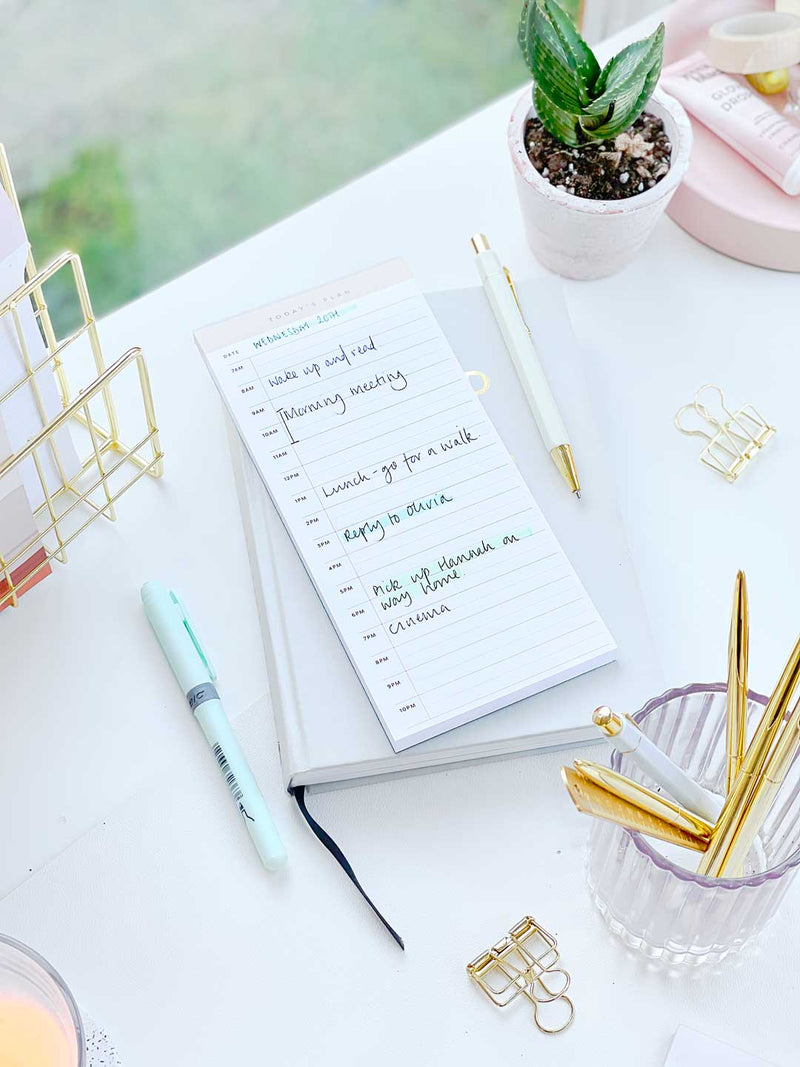 TODAY'S PLAN
DATE WEDNESDAY 20TH
7AM
8AM Wake up and read
9AM Morning meeting.
10AM
11AM
12PM
1PM Lunch - go for a walk.
2PM
3PM Reply to Olivia
4PM
5PM Pick up Hannah on
6PM way home.
7PM Cinema
8PM
9PM
10PM
BIC
GLOW
DROPS